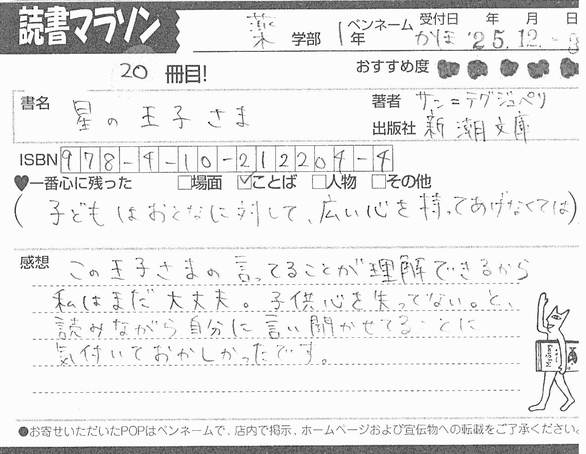 読書マラソン
薬 学部 1年 ペンネーム かほ 受付日 '25年 12月 日
20 冊目! おすすめ度
書名 星の王子さま
著者 サン=テグジュペリ
出版社 新潮文庫
ISBN 978-4-10-212204-4
♥一番心に残った □場面 ☑ことば □人物 □その他
(子どもはおとなに対して、広い心を持ってあげなくては)
感想 この王子さまの言ってることが理解できるから
私はまだ大丈夫。子供心を失ってない。と、
読みながら自分に言い聞かせてることに
気付いておかしかったです。
●お寄せいただいたPOPはペンネームで、店内で掲示、ホームページおよび宣伝物への転載をご了承ください。